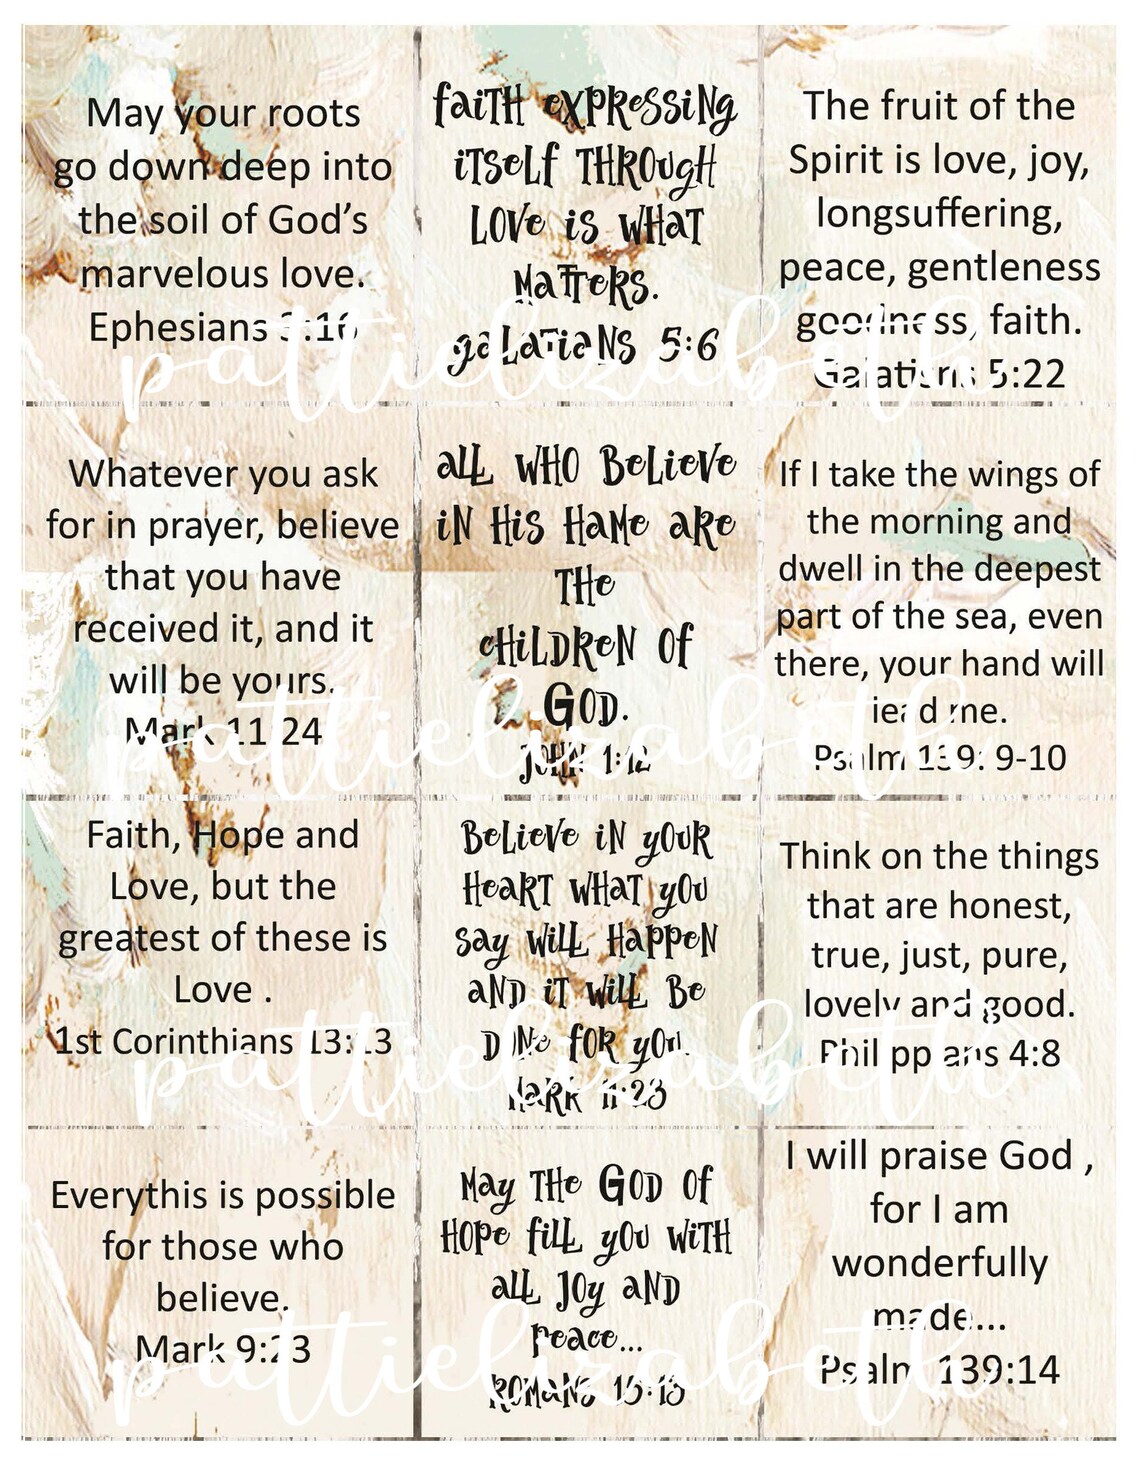 May your roots
go down deep into
the soil of God's
marvelous love.
Ephesians 3:16
faith expressing
itself through
love is what
matters.
galatians 5:6
The fruit of the
Spirit is love, joy,
longsuffering,
peace, gentleness
goodness, faith.
Galatians 5:22
pattielizabeth
Whatever you ask
for in prayer, believe
that you have
received it, and it
will be yours.
Mark 11:24
all who believe
in his hame are
the
children of
God.
John 1:12
If I take the wings of
the morning and
dwell in the deepest
part of the sea, even
there, your hand will
lead me.
Psalm 139: 9-10
pattielizabeth
Faith, Hope and
Love, but the
greatest of these is
Love .
1st Corinthians 13:13
Believe in your
heart what you
say will happen
and it will be
done for you.
Mark 11:23
Think on the things
that are honest,
true, just, pure,
lovely and good.
Philippians 4:8
pattielizabeth
Everythis is possible
for those who
believe.
Mark 9:23
May the God of
hope fill you with
all joy and
peace...
Romans 15:13
I will praise God ,
for I am
wonderfully
made...
Psalm 139:14
pattielizabeth